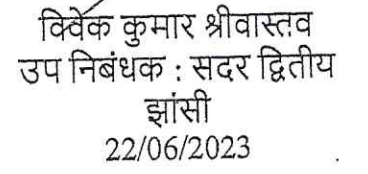 विवेक कुमार श्रीवास्तव
उप निबंधक : सदर द्वितीय
झांसी
22/06/2023